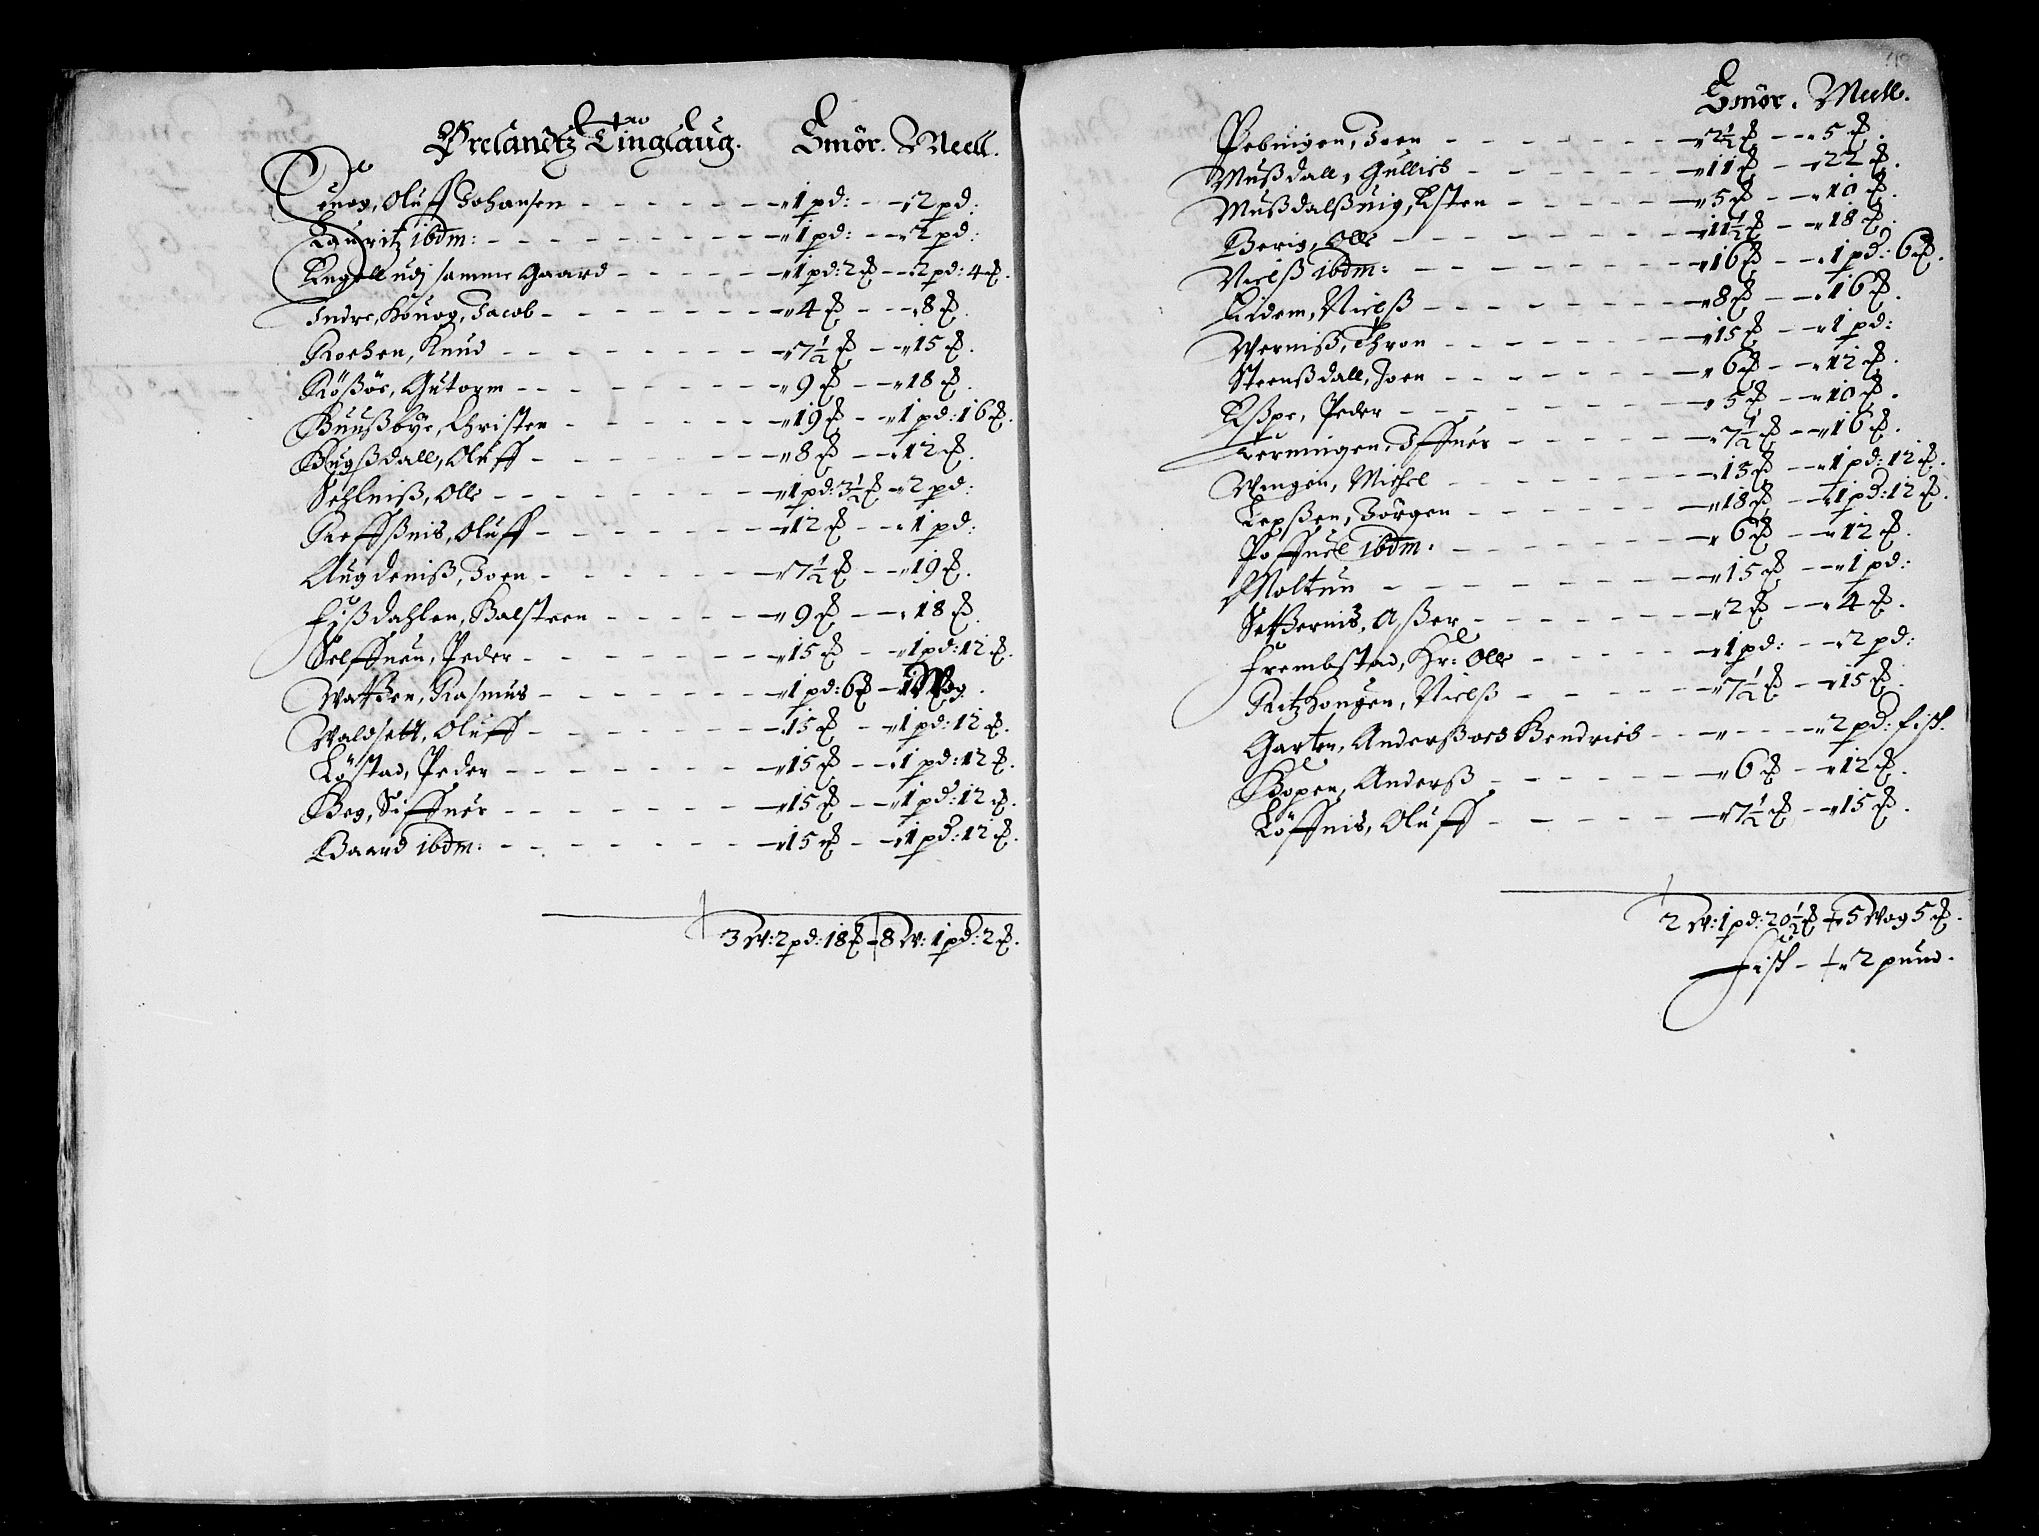 Ørelandtz Tinglaug. Smör. Meell.
Oluff Johansen - - - - - - 1 pd: - - 2 pd:
Lauritz ibdm: - - - - - - - 1 pd: - - 2 pd:
Engell udj samme Gaard - - - - 1 pd: 2 ℔ - - 2 pd: 4 ℔.
Indre, Houog, Jacob - - - - - - - 4 ℔ - - 8 ℔.
Roehen, Knud - - - - - - - 7½ ℔ - - 15 ℔.
Rößöe, Gutorm - - - - - - - 9 ℔ - - 18 ℔.
Huußbye, Christen - - - - - - 19 ℔ - - 1 pd: 16 ℔.
Hugßdall, Oluff - - - - - - - 8 ℔ - - 12 ℔.
Sehlniß, Olle - - - - - - - 1 pd: 3½ ℔ - 2 pd:
Reffßnis, Oluff - - - - - - - 12 ℔ - - 1 pd:
Augdeniß, Joen - - - - - - - 7½ ℔ - - 19 ℔.
Fißdahlen, Halsteen - - - - - 9 ℔ - - 18 ℔.
Selffneu, Peder - - - - - - - 15 ℔ - - 1 pd: 12 ℔.
Rasmus - - - - - - - 1 pd: 6 ℔ - 1 Wog.
Waldsett, Oluff - - - - - - - 15 ℔ - - 1 pd: 12 ℔.
Löstad, Peder - - - - - - - 15 ℔ - - 1 pd: 12 ℔.
Siffuer - - - - - - - 15 ℔ - - 1 pd: 12 ℔.
Baard ibdm: - - - - - - - 15 ℔ - - 1 pd: 12 ℔.
3 W: 2 pd: 18 ℔ - 8 W: 1 pd: 2 ℔.
Smör. Meell.
Joen - - - - - - - 2½ ℔ - - 5 ℔.
Mußdall, Gullich - - - - - - 11 ℔ - - 22 ℔.
Mußdalßuig, Esten - - - - - 5 ℔ - - 10 ℔.
Berig, Olle - - - - - - - - 11½ ℔ - - 18 ℔.
Nielß ibdm: - - - - - - - - 16 ℔ - - 1 pd: 6 ℔.
Eidem, Nielß - - - - - - - 8 ℔ - - 16 ℔.
Werniß, Thron - - - - - - - 15 ℔ - - 1 pd:
Steenßdall, Joen - - - - - - 6 ℔ - - 12 ℔.
Eßpe, Peder - - - - - - - - 5 ℔ - - 10 ℔.
Terningen, Iffuer - - - - - - 7½ ℔ - - 16 ℔.
Wingen, Michel - - - - - - - 15 ℔ - - 1 pd: 12 ℔.
Lerßen, Jörgen - - - - - - - 18 ℔ - - 1 pd: 12 ℔.
Poffuel ibdm. - - - - - - - 6 ℔ - - 12 ℔.
Moltun - - - - - - - - 15 ℔ - - 1 pd:
Setßernis, Aßer - - - - - - - 2 ℔ - - 4 ℔.
Frembstad, Hr: Olle - - - - - 1 pd: - - 2 pd:
Ritzhougen, Nielß - - - - - - 7½ ℔ - - 15 ℔.
Garten, Anderß och Hendrich - - - - - 2 pd: fisk.
Hopen, Anderß - - - - - - 6 ℔ - - 12 ℔.
Löffnis, Oluff - - - - - - 7½ ℔ - - 15 ℔.
2 W: 1 pd: 20½ ℔ - 5 Wog 5 ℔.
Fisk - - 2 pund.